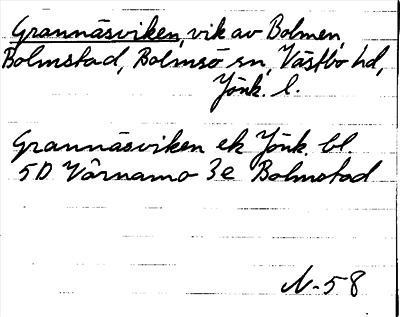 Grannäsviken, vik av Bolmen,
Bolmstad, Bolmsö sn, Västbo hd,
Jönk. l.
Grannäsviken ek Jönk. bl.
5D Värnamo 3e Bolmstad
N-58